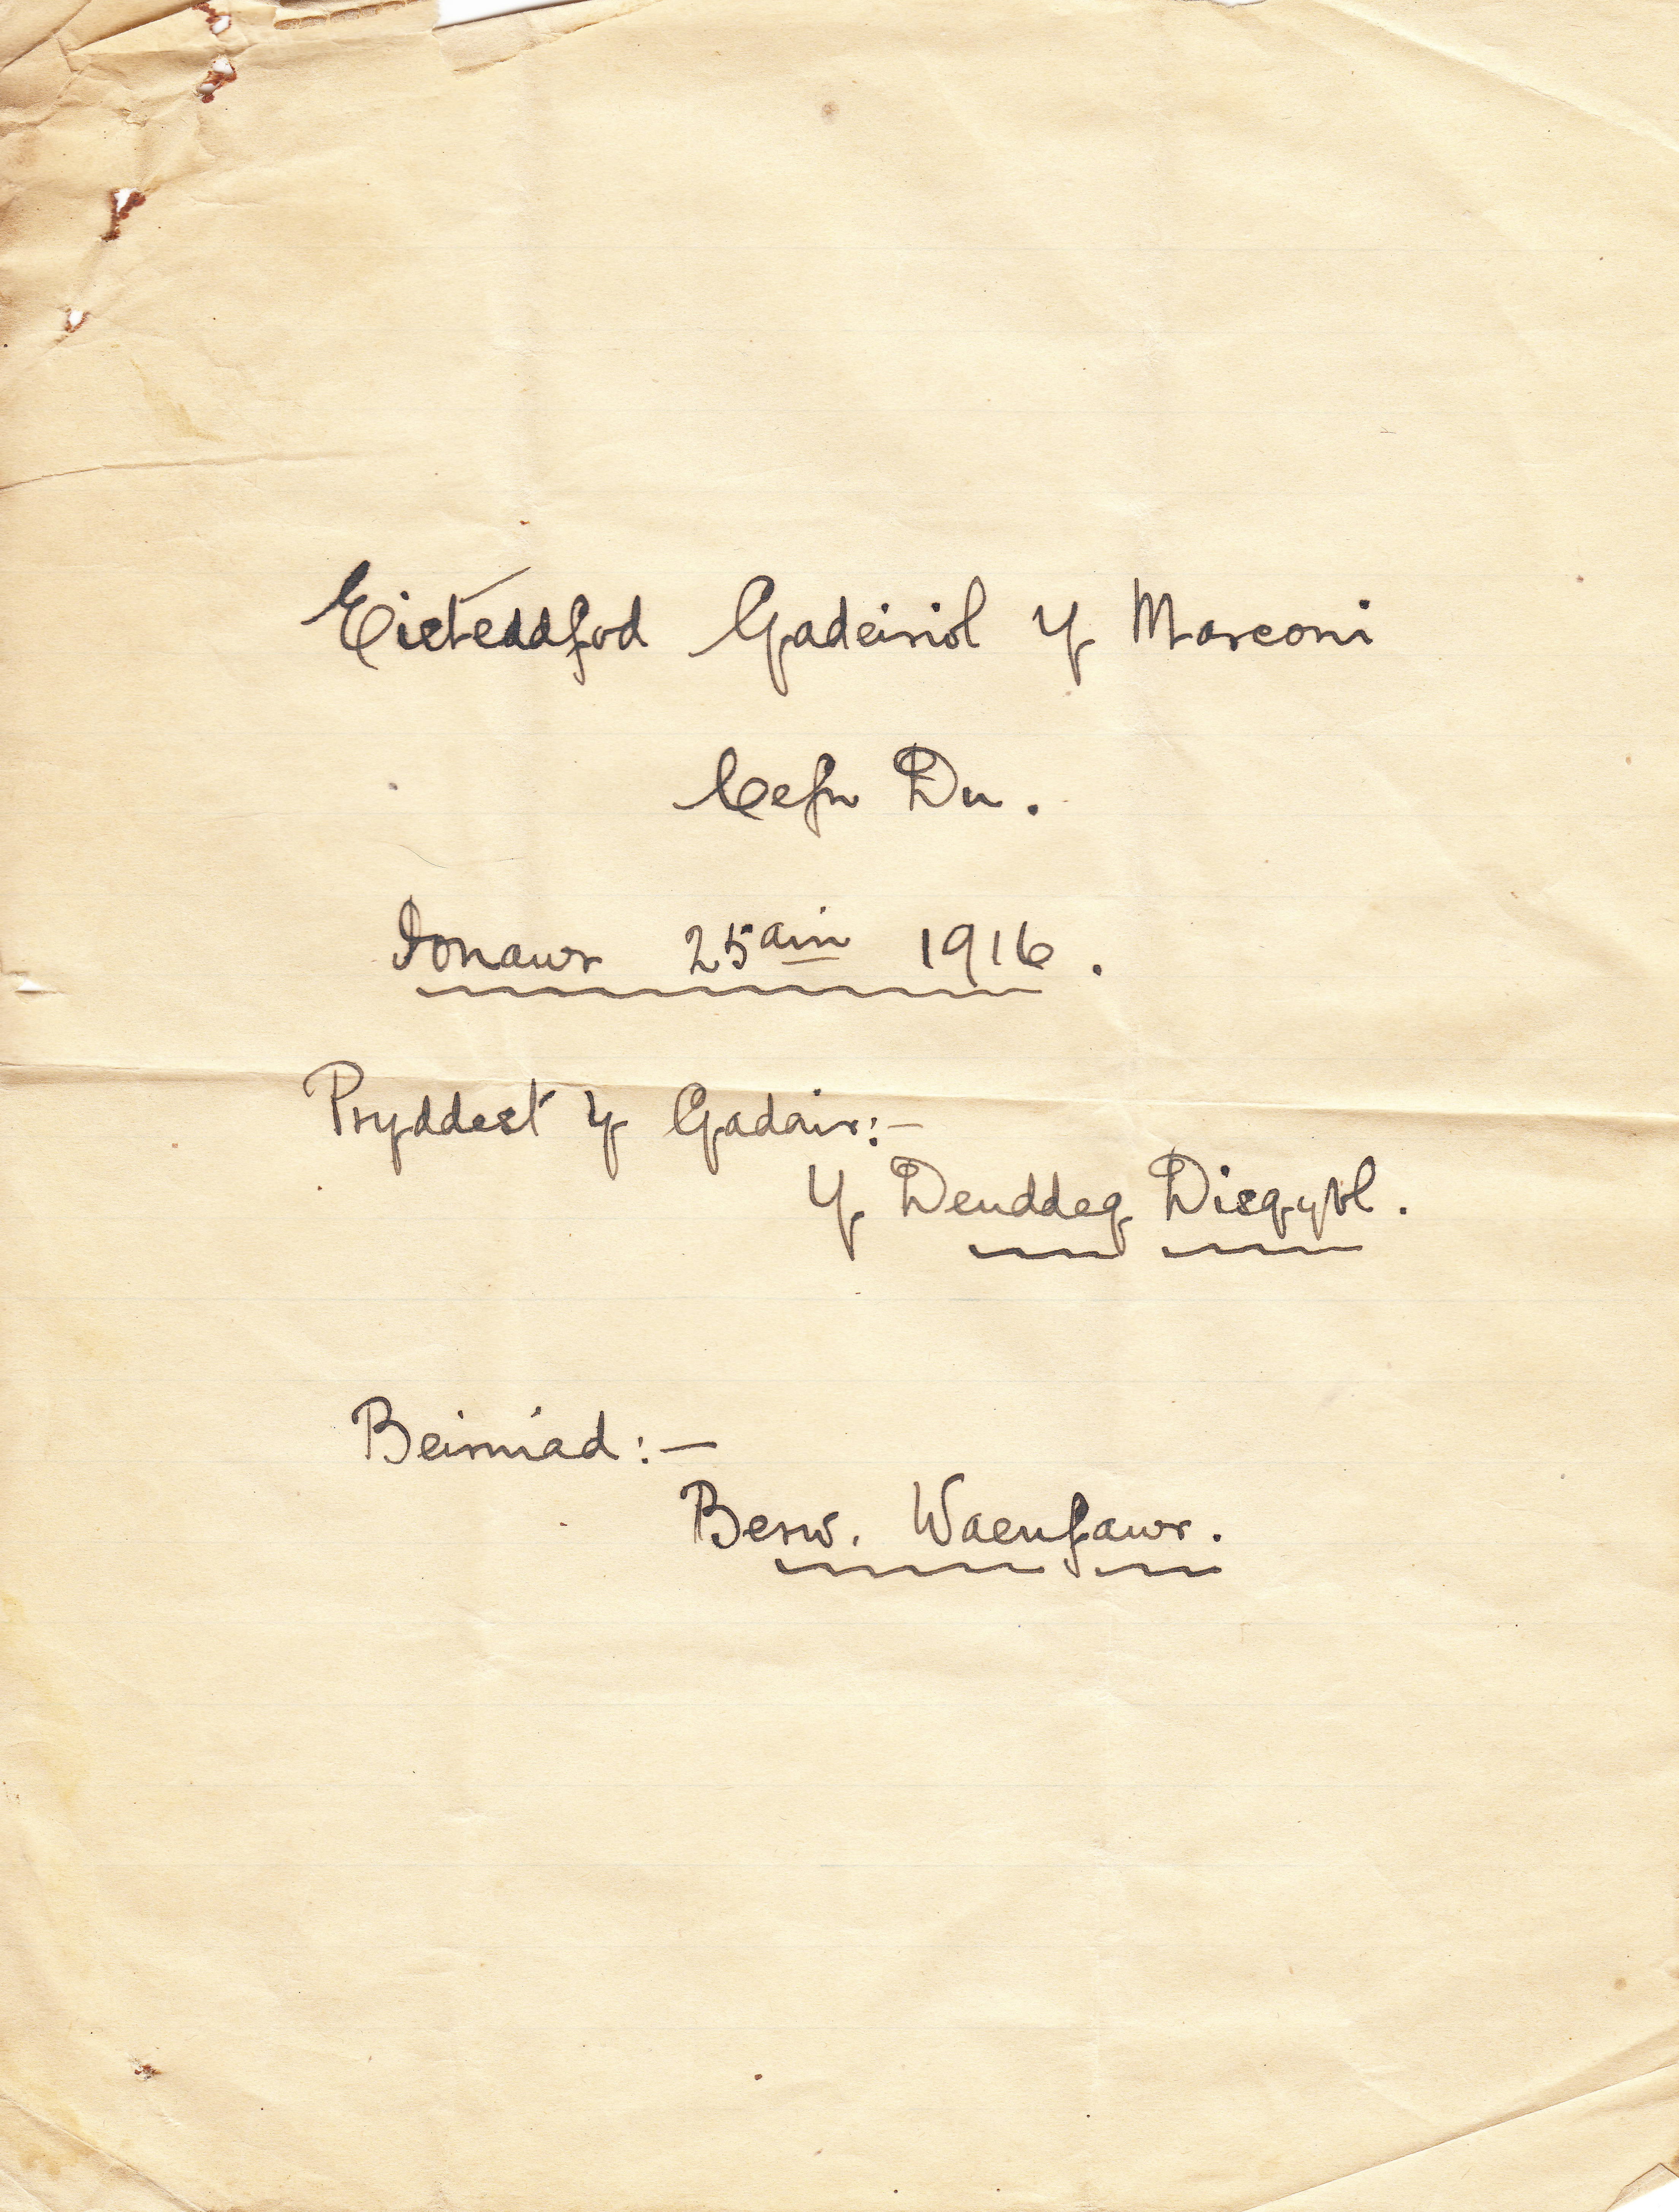 Eisteddfod Gadeiriol y Marconi
Cefn Du.
Ionawr 25ain 1916.
Pryddest y Gadair:-
Y Deuddeg Disgybl.
Beirniad:-
Berw. Waenfawr.